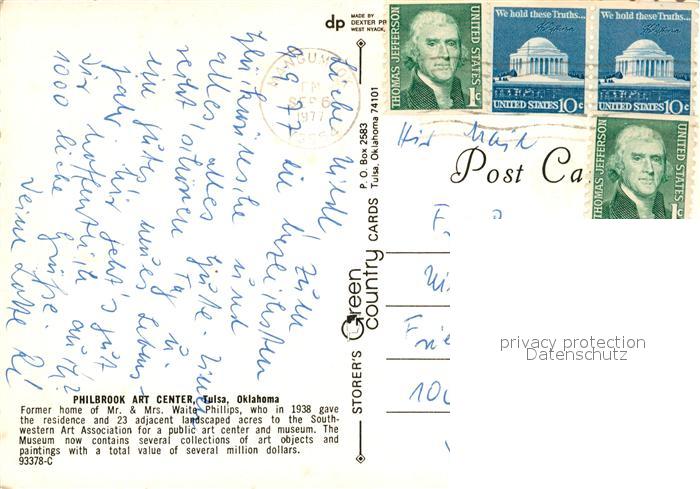 dp
MADE BY
DEXTER PR
WEST NYACK,
SEP 6
1977
THOMAS JEFFERSON
UNITED STATES
1c
We hold these Truths...
UNITED STATES 10c
We hold these Truths...
UNITED STATES 10c
THOMAS JEFFERSON
UNITED STATES
1c
Post Ca
Liebe
9.9.77 die herzlichsten
Glückwünsche und
alles, alles Gute. Einen
recht schönen Tag u.
ein gutes neues Lebens-
jahr. Mir geht's gut
Dir hoffentlich auch!
1000 liebe Grüße
Deine
STORER'S Green country CARDS
P. O. Box 2583
Tulsa, Oklahoma 74101
Frie
privacy protection
Datenschutz
PHILBROOK ART CENTER, Tulsa, Oklahoma
Former home of Mr. & Mrs. Waite Phillips, who in 1938 gave
the residence and 23 adjacent landscaped acres to the South-
western Art Association for a public art center and museum. The
Museum now contains several collections of art objects and
paintings with a total value of several million dollars.
93378-C